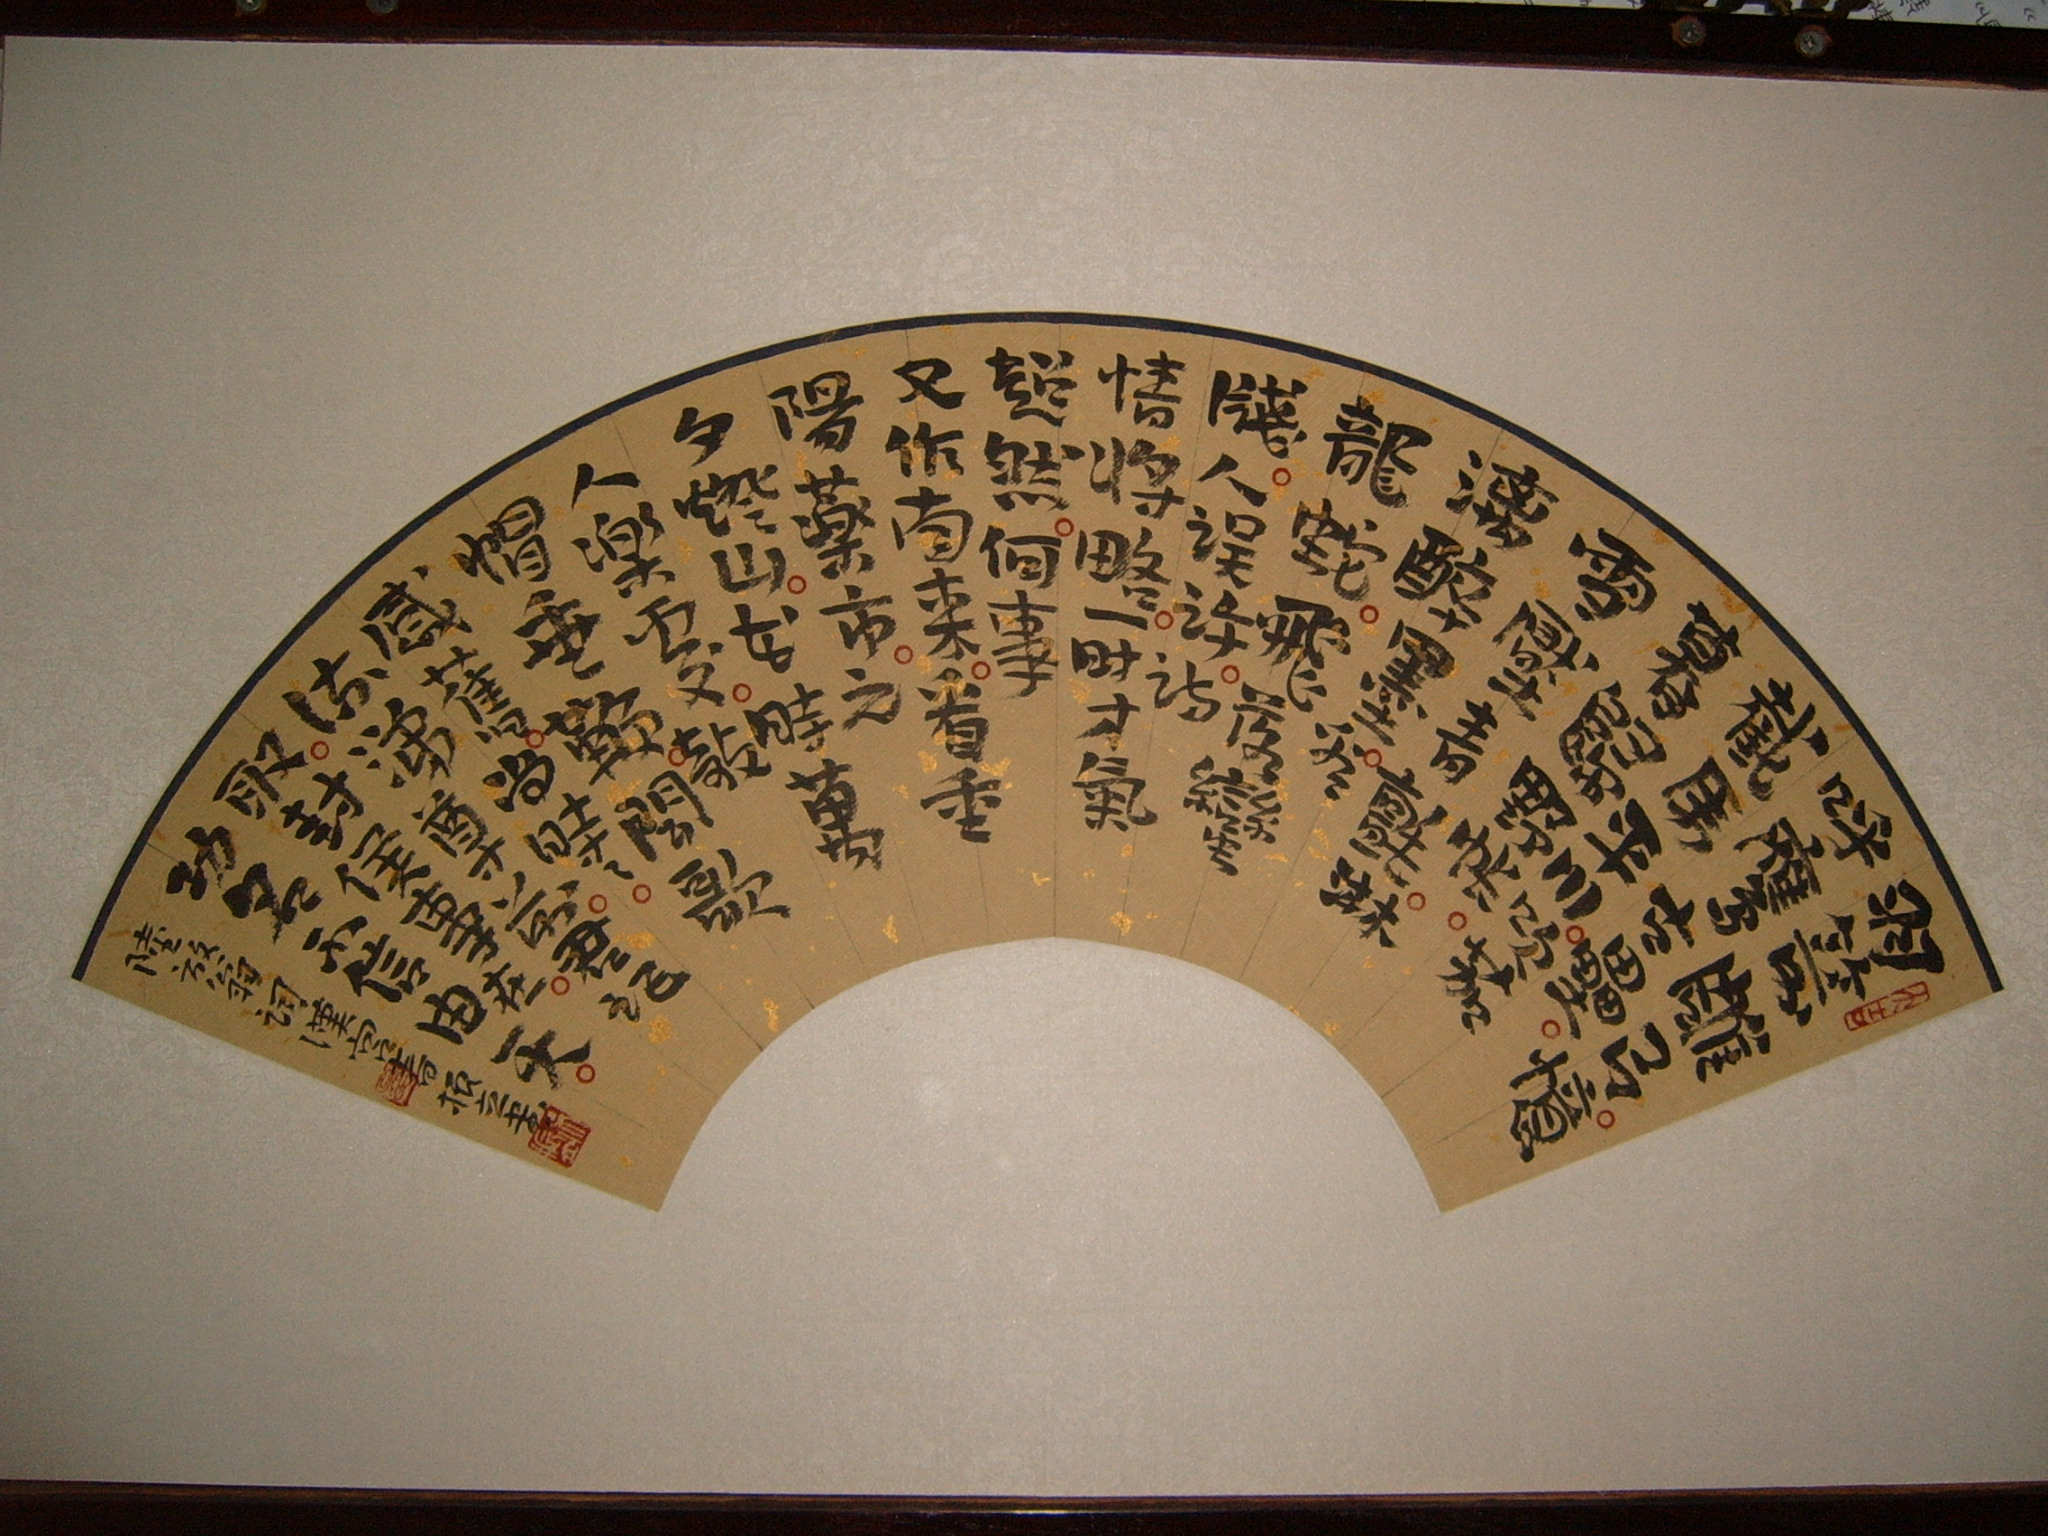 羽箭雕弓憶
呼鷹古壘
截虎平川吹笳
暮歸野帳
雪壓青氈淋
漓醉墨看
龍蛇飛落蠻
箋人誤許詩
情將略一時才氣
超然何事
又作南來看重
陽藥市元
夕燈山花時萬
人樂處欹
帽垂鞭聞歌
感舊尚時時
流涕尊前君記
取封侯事在
功名不信由天
陸放翁詞漢宮春